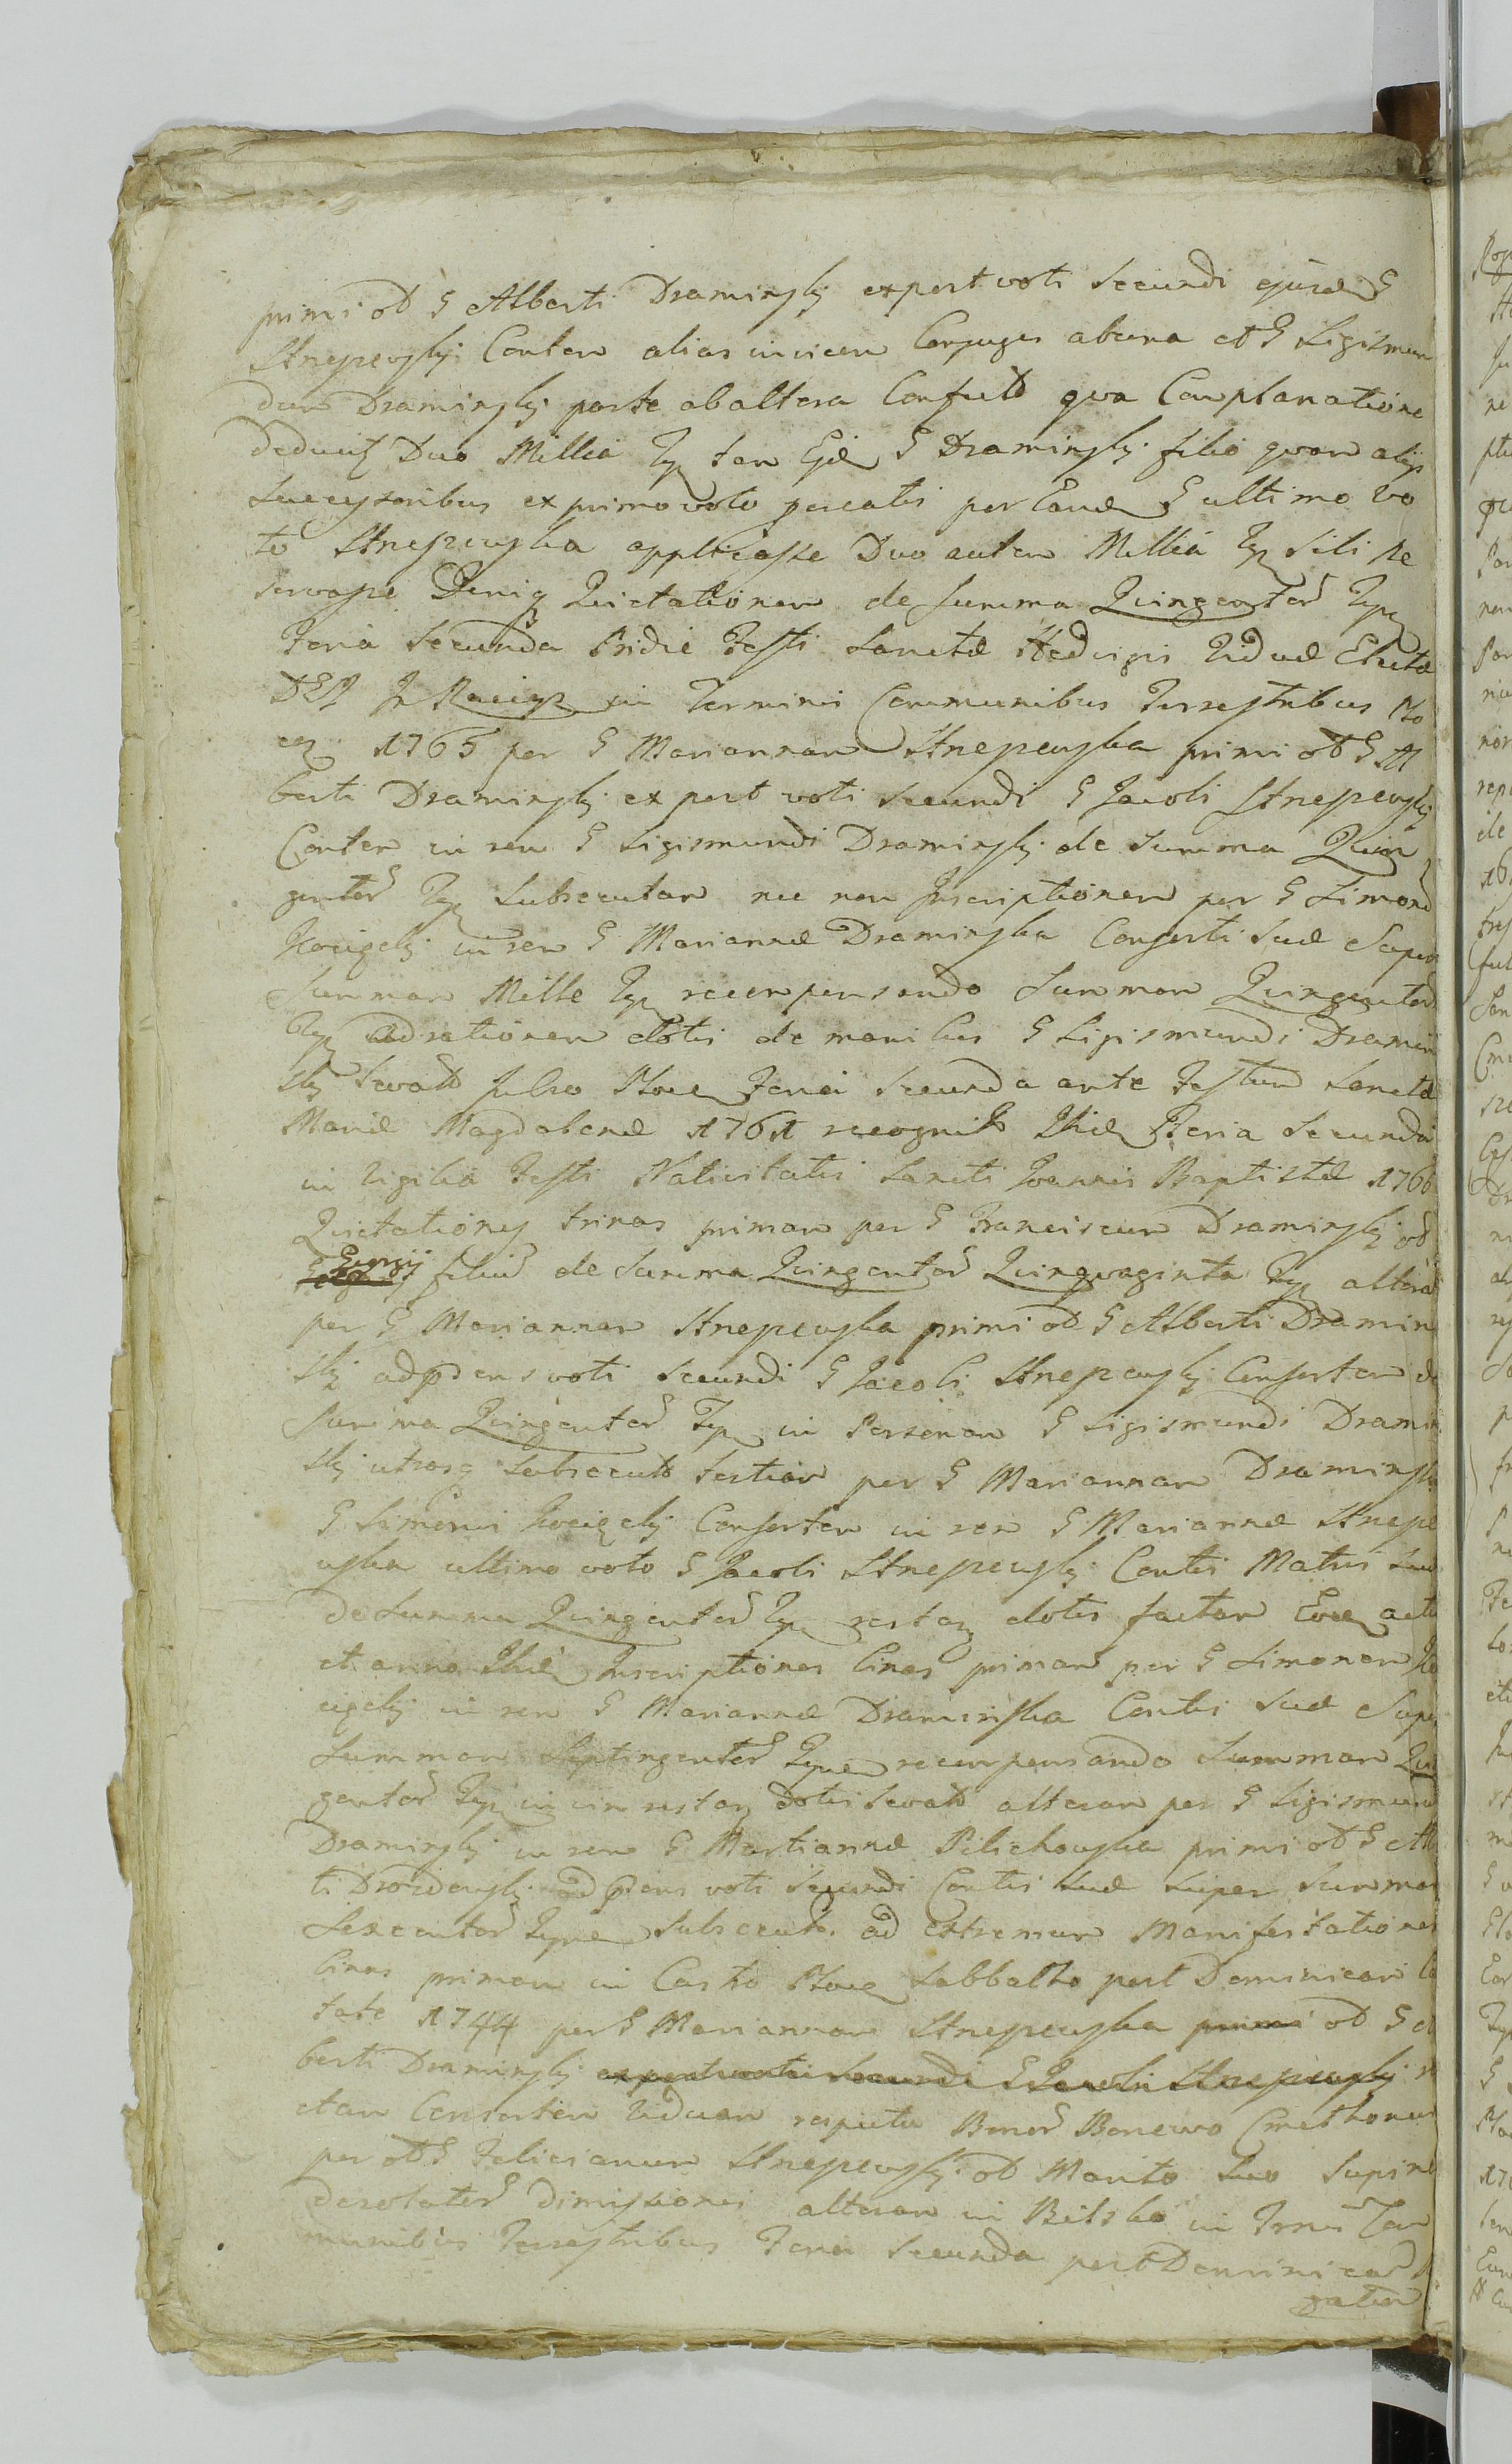 primi od G Alberti Draminsky expost voti Secundi ejusd G
Strzepewsky Conten alias invicem Conjuges ab una et G Sigismun
dum Draminsky parte ab altera Confect qva Complanatione
deducit Duo Millia Tyn tam Ejd G Draminsky filio qvam alys
Successoribus ex primo voto procatis per Eand G ultimo vo
to Strzepewska applicasse Duo autem Millia Tyn Sibi Re
servasse Deniq Qvietationem de Summa Qvingentor Typ
Feria Secunda Pridie Festi Sanctæ Hedvigis Viduæ Electæ
in Terminis Communibus Terrestribus Plo
cen 1765 per G Mariannam Strzepewska primi od G Al
berti Draminsky expost voti Secundi G Jacobi Strzepewsky
Conten in rem G Sigismundi Draminsky de Summa Quin
gentor Typ Subsecutam nec non Inscriptionem per G Simone
Kocięcky in rem G Mariannæ Draminska Consorti Suæ Super
Summam Mille Typ recompensando Summam Qvingentor
Typ ad rationem dotis de manibus G Sigismundi Dramin
sky levat Feria Secunda ante Festum Sanctæ
Mariæ Magdalenæ 1761 recognit Ibid Feria Secunda
in Vigilia Festi Nativitatis Sancti Joannis Baptistæ 1766
Qvietationes trinas primam per G Franciscum Draminsky od
G Georgij filiu de Summa Qvingentor Qvinqvaginta Typ altera
per G Mariannam Strzepewska primi od G Alberti Dramin
sky ad præsens voti Secundi G Jacobi Strzepewsky Consortem de
Summa Qvingentor Typ in Personam G Sigismundi Dramin
sky utrasq Subsecut tertiam per G Mariannam Draminska
G Simonis Kocięcky Consortem in rem G Mariannæ Strzepe
wska ultimo voto G Jacobi Strzepewsky Contis Matris Suæ
de Summa Qvingentor Typ restan dotis factam Eod actu
et anno Ibid Inscriptiones binas primam per G Simonem Ko
cięcky in rem G Mariannæ Draminska Contis Suæ Super
Summam Septingentor Tyn recompensando Summam Qvi
gentor Typ in vim restan dotis levat alteram per G Sigismund
Draminsky in rem G Martiannæ Pilichowska primi od G Alb
ti Drozdewsky ad præsens voti Secundi Contis Suæ Super Summam
Sexcentor Tyn Subsecut ad extremum Manifestationes
binas primam in Castro Ploc Sabbatho post Dominicam
tate 1744 per G Mariannam Strzepewska primi od G Al
berti Draminsky expost voti Secundi G Jacobi Strzepewsky
ctam Consortem Viduam respectu Bonor Bonewo Cmethonem
per od G Felicianum Strzepewsky od Marito Suo Supino
desolator dimissionis alteram in Bielsko in Trnis Com
munibus Terrestribus Feria Secunda post Dominicam
gation